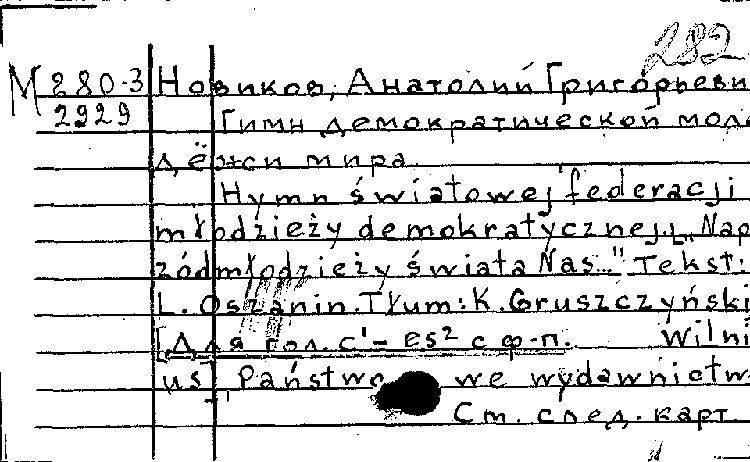 282
М 280-3 Новиков, Анатолий Григорьеви
2929 Гимн демократической моло
дёжи мира.
Hymn światowej federacji
młodzieży demokratycznej. „Nap
zódmłodzieży świata Nas..." Tekst:
L. Oszanin. Tłum: K. Gruszczyński
[Для гол. c¹- es² с ф-п. Wilni
us], Państwo we wydawnictw
См. след. карт